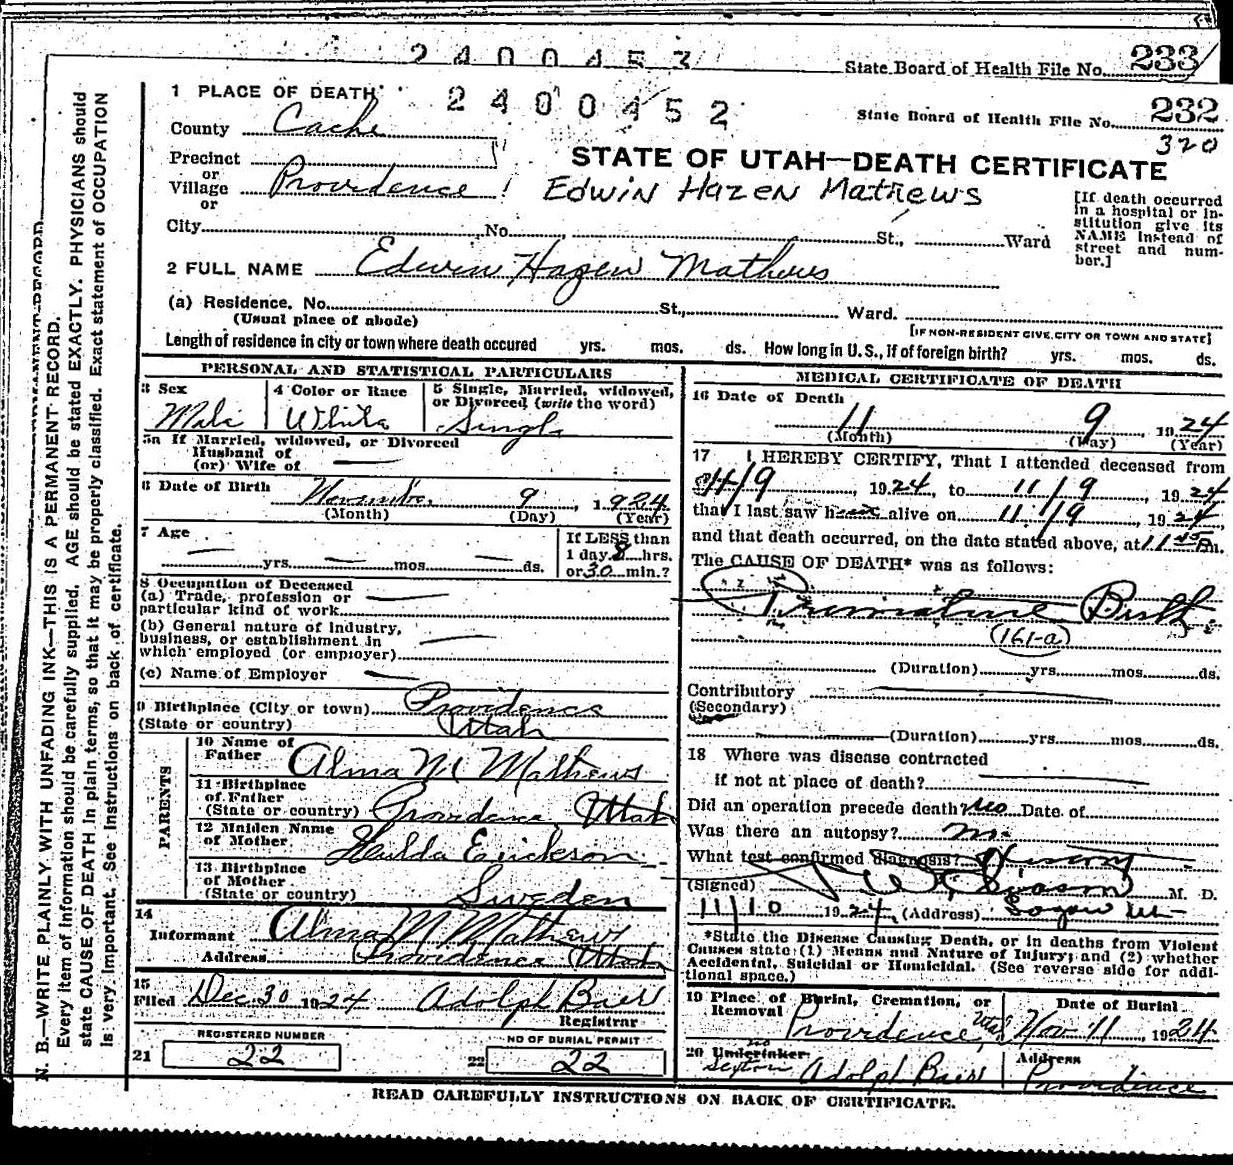 2400453
State Board of Health File No. 233
1 PLACE OF DEATH
2400452
State Board of Health File No. 232
320
County Cache
Precinct
or
Village Providence
or
STATE OF UTAH—DEATH CERTIFICATE
Edwin Hazen Mathews
[If death occurred in a hospital or institution give its NAME instead of street and number.]
City No. St., Ward
2 FULL NAME Edwin Hazen Mathews
(a) Residence. No. St., Ward.
(Usual place of abode)
[IF NON-RESIDENT GIVE CITY OR TOWN AND STATE]
Length of residence in city or town where death occured yrs. mos. ds. How long in U. S., if of foreign birth? yrs. mos. ds.
PERSONAL AND STATISTICAL PARTICULARS
3 Sex Male
4 Color or Race White
5 Single, Married, widowed, or Divorced (write the word) Single
5a If Married, widowed, or Divorced
Husband of
(or) Wife of
6 Date of Birth November 9, 1924
(Month) (Day) (Year)
7 Age
yrs. mos. ds.
If LESS than
1 day 8 hrs.
or 30 min.?
8 Occupation of Deceased
(a) Trade, profession or
particular kind of work
(b) General nature of industry,
business, or establishment in
which employed (or employer)
(c) Name of Employer
9 Birthplace (City or town) Providence
(State or country) Utah
PARENTS
10 Name of Father Alma M Mathews
11 Birthplace of Father (State or country) Providence Utah
12 Maiden Name of Mother Hulda Erickson
13 Birthplace of Mother (State or country) Sweden
14
Informant Alma M Mathews
Address Providence Utah
15
Filed Dec. 30 1924 Adolph Baer
Registrar
REGISTERED NUMBER
21 22
NO OF BURIAL PERMIT
22 22
MEDICAL CERTIFICATE OF DEATH
16 Date of Death
11 9, 1924
(Month) (Day) (Year)
17 I HEREBY CERTIFY, That I attended deceased from
11/9, 1924, to 11/9, 1924
that I last saw h alive on 11/9, 1924,
and that death occurred, on the date stated above, at 11 m.
The CAUSE OF DEATH* was as follows:
Premature Birth
161-a
(Duration) yrs. mos. ds.
Contributory
(Secondary)
(Duration) yrs. mos. ds.
18 Where was disease contracted
if not at place of death?
Did an operation precede death no Date of
Was there an autopsy? no
What test confirmed diagnosis? History
(Signed) M. D.
11/10 1924, (Address) Logan Ut
*State the Disease Causing Death, or in deaths from Violent
Causes state (1) Means and Nature of Injury; and (2) whether
Accidental, Suicidal or Homicidal. (See reverse side for additional space.)
19 Place of Burial, Cremation, or Removal Providence, Utah
Date of Burial Nov 11, 1924
20 Undertaker no Sexton Adolph Baer
Address Providence
READ CAREFULLY INSTRUCTIONS ON BACK OF CERTIFICATE.
N. B.—WRITE PLAINLY WITH UNFADING INK—THIS IS A PERMANENT RECORD.
Every item of information should be carefully supplied. AGE should be stated EXACTLY. PHYSICIANS should
state CAUSE OF DEATH in plain terms, so that it may be properly classified. Exact statement of OCCUPATION
is very important. See instructions on back of certificate.